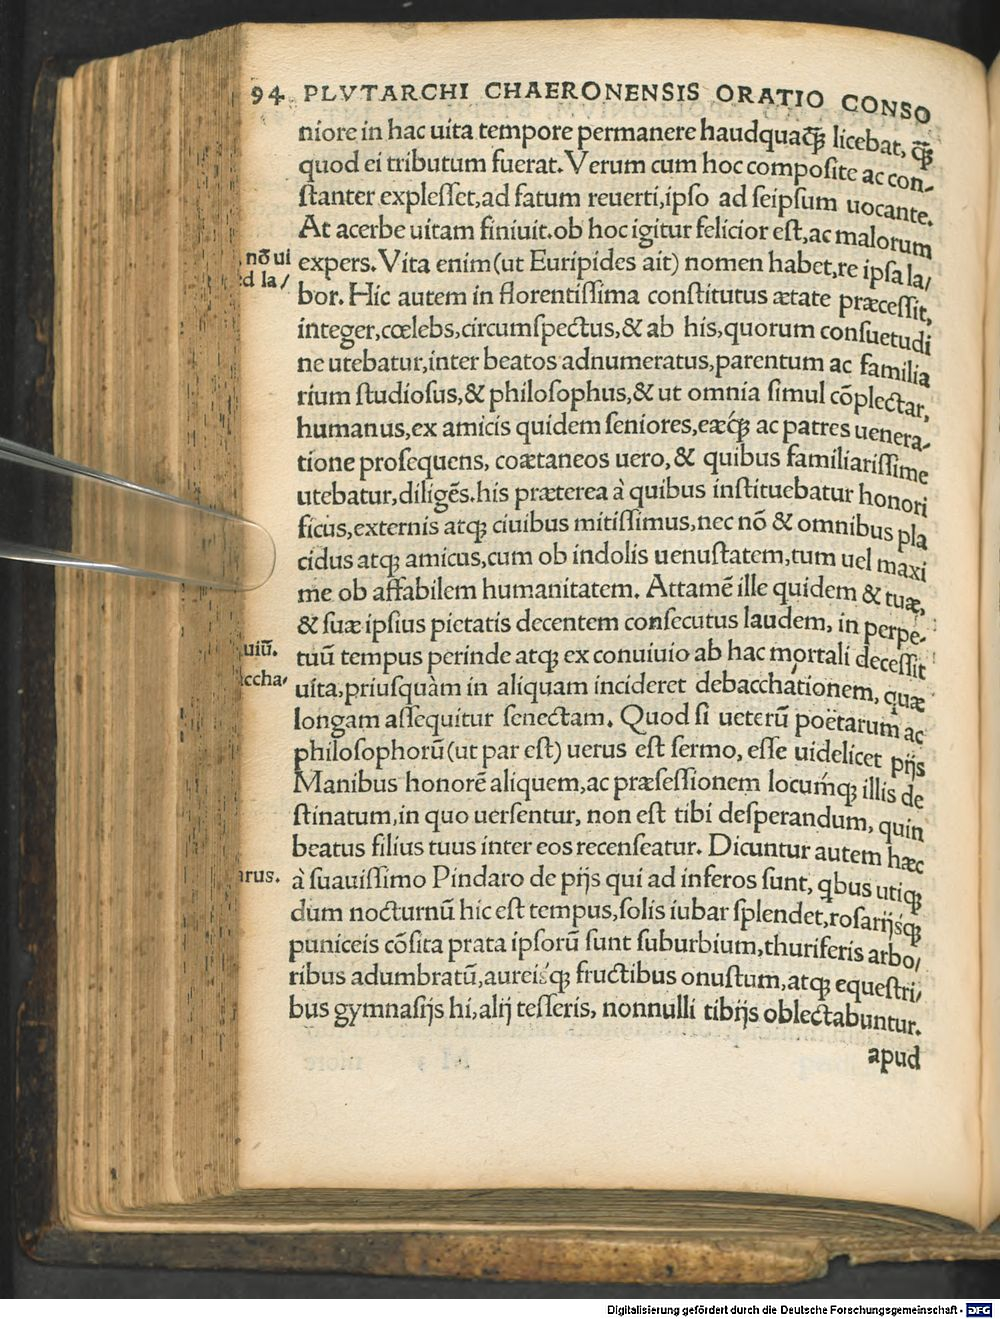 94 PLVTARCHI CHAERONENSIS ORATIO CONSO
niore in hac uita tempore permanere haudquaq̃ꝫ licebat, q̃ꝫ
quod ei tributum fuerat. Verum cum hoc composite ac con-
stanter explesset, ad fatum reuerti, ipso ad seipsum uocante.
At acerbe uitam finiuit. ob hoc igitur felicior est, ac malorum
nō ui
expers. Vita enim (ut Euripides ait) nomen habet, re ipsa la/
d la/
bor. Hic autem in florentissima constitutus ætate præcessit,
integer, cœlebs, circumspectus, & ab his, quorum consuetudi
ne utebatur, inter beatos adnumeratus, parentum ac familia
rium studiosus, & philosophus, & ut omnia simul cōplectar,
humanus, ex amicis quidem seniores, eæq́ꝫ ac patres uenera-
tione prosequens, coætaneos uero, & quibus familiarissime
utebatur, diligēs. his præterea à quibus instituebatur honori
ficus, externis atqꝫ ciuibus mitissimus, nec nō & omnibus pla
cidus atqꝫ amicus, cum ob indolis uenustatem, tum uel maxi
me ob affabilem humanitatem. Attamē ille quidem & tuæ,
& suæ ipsius pietatis decentem consecutus laudem, in perpe-
uiū.
tuū tempus perinde atqꝫ ex conuiuio ab hac mortali decessit
ccha/
uita, priusquàm in aliquam incideret debacchationem, quæ
longam assequitur senectam. Quod si ueterū poëtarum ac
philosophorū (ut par est) uerus est sermo, esse uidelicet pijs
Manibus honorē aliquem, ac præsessionem locumq́ꝫ illis de
stinatum, in quo uersentur, non est tibi desperandum, quin
beatus filius tuus inter eos recenseatur. Dicuntur autem hæc
arus.
à suauissimo Pindaro de pijs qui ad inferos sunt, qbus utiqꝫ
dum nocturnū hic est tempus, solis iubar splendet, rosarijsq́ꝫ
puniceis cōsita prata ipsorū sunt suburbium, thuriferis arbo/
ribus adumbratū, aureisq́ꝫ fructibus onustum, atqꝫ equestri/
bus gymnasijs hi, alij tesseris, nonnulli tibijs oblectabuntur.
apud
Digitalisierung gefördert durch die Deutsche Forschungsgemeinschaft - DFG